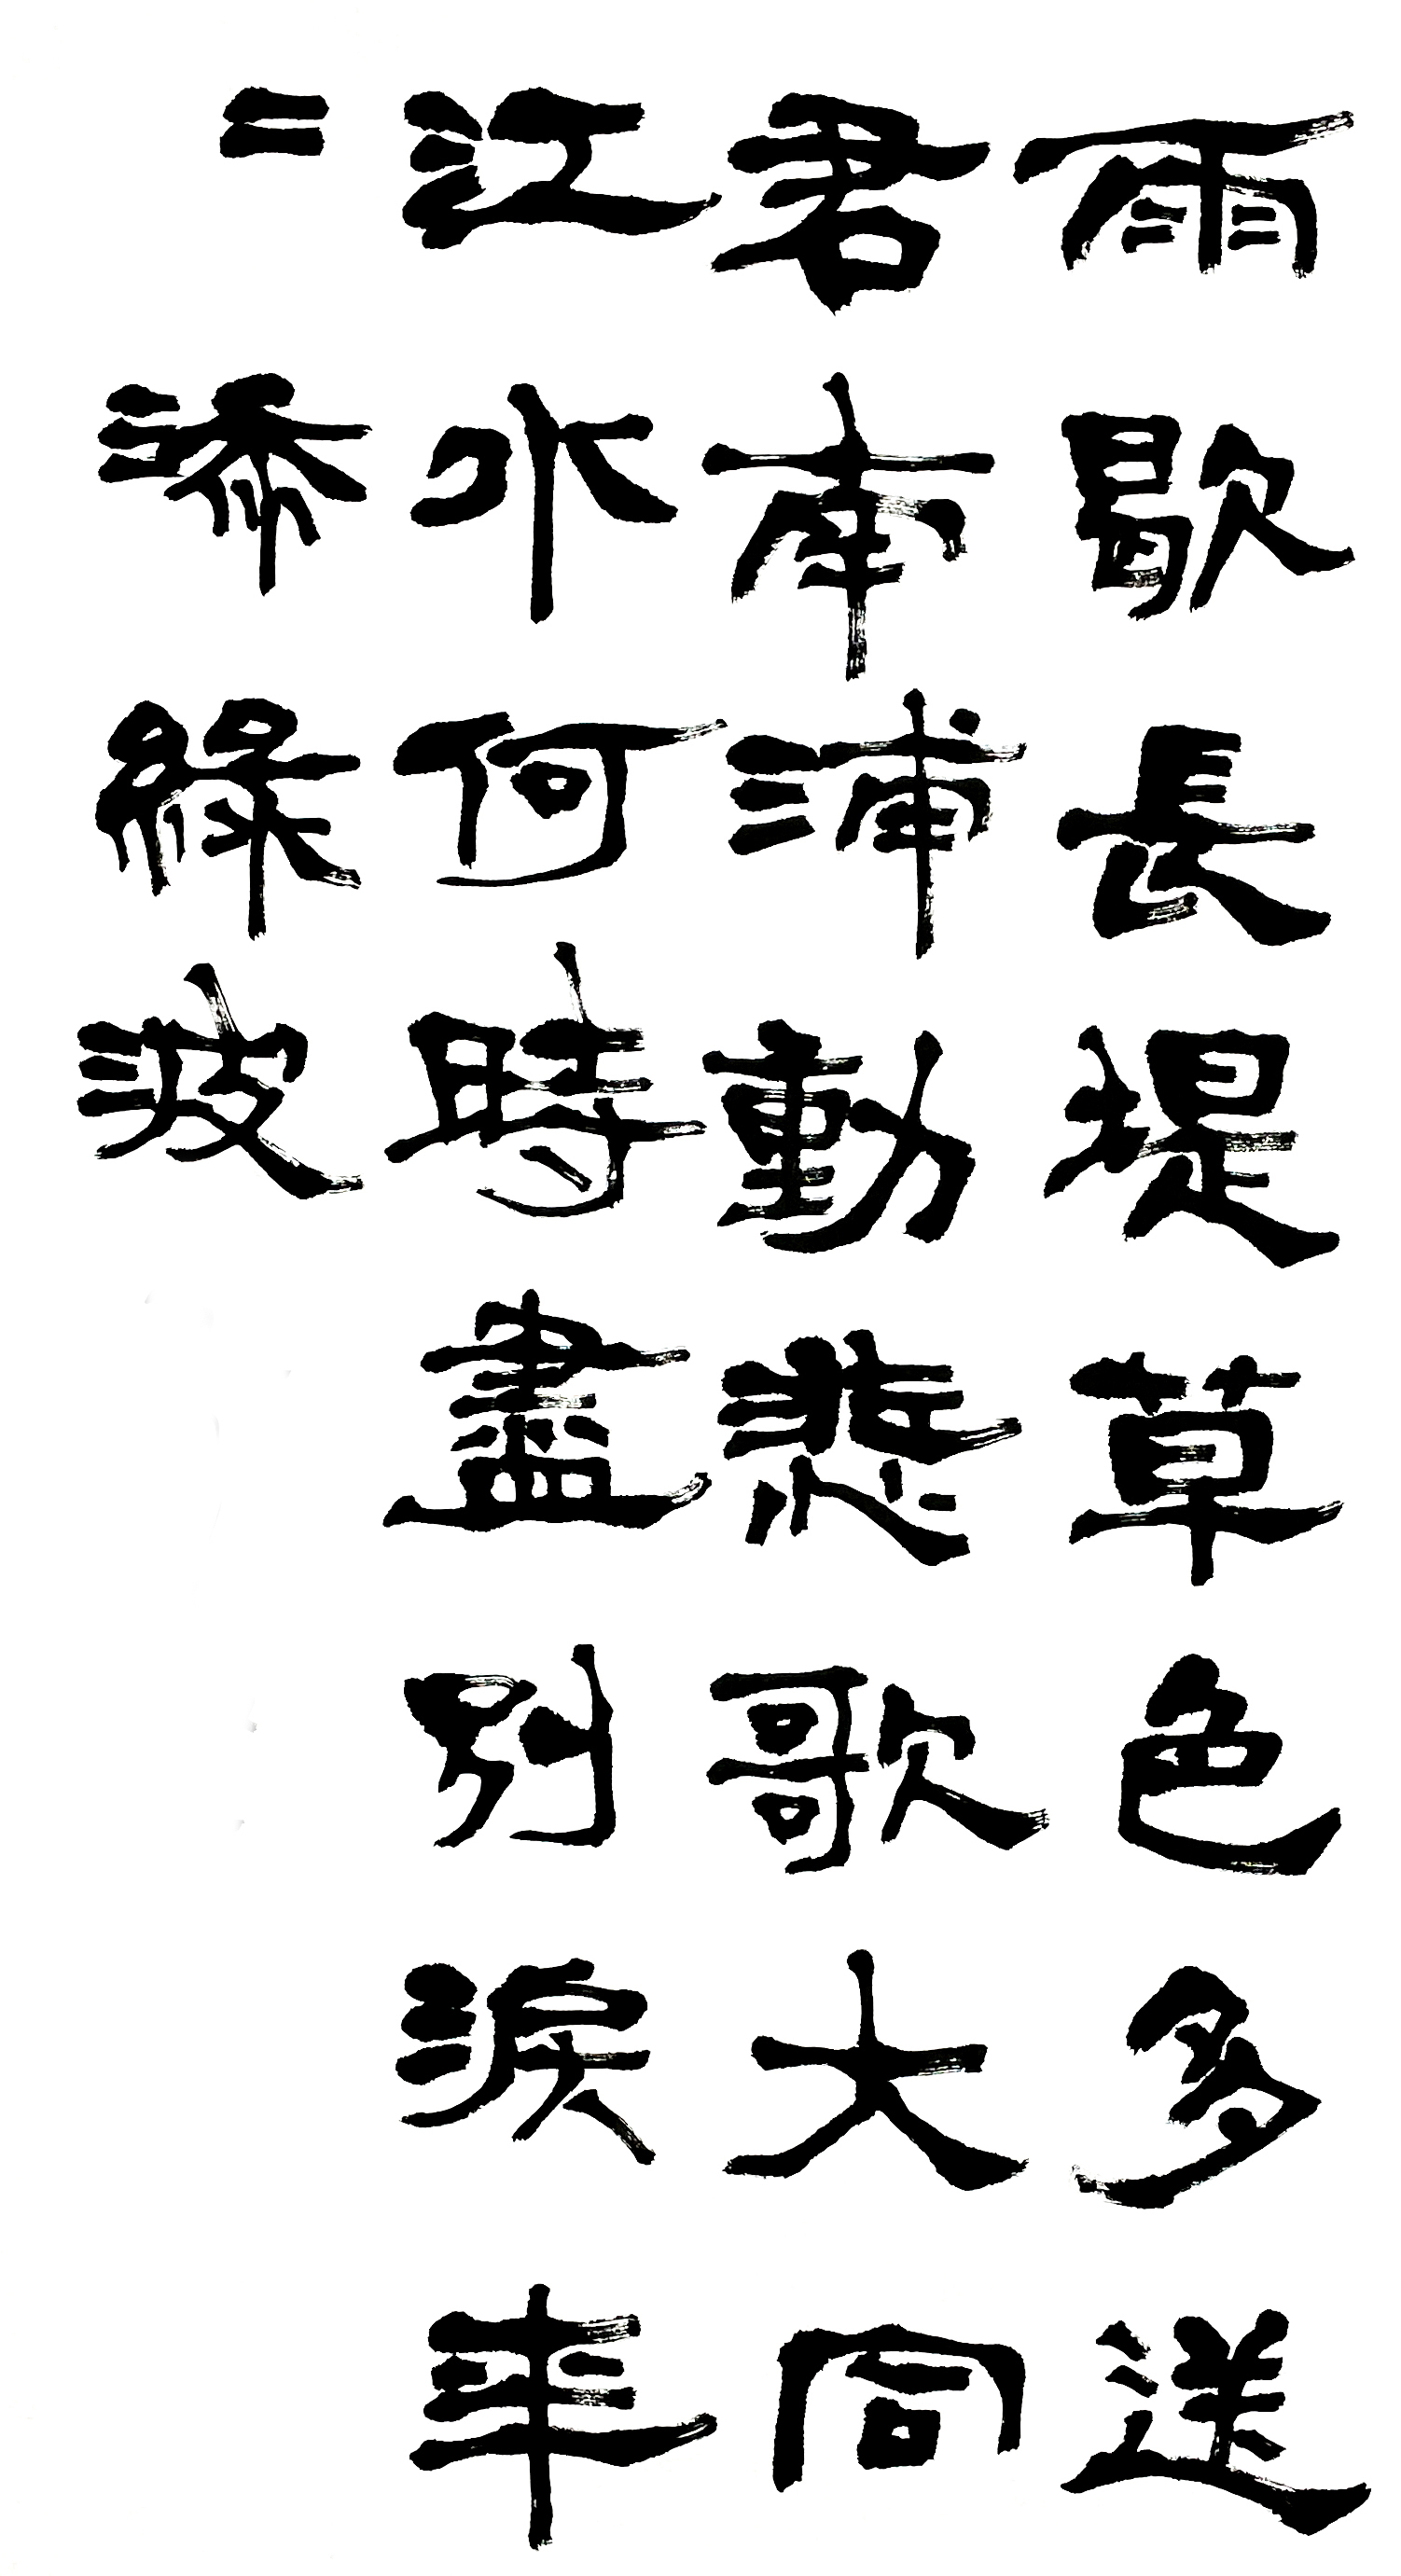 雨歇長堤草色多送
君南浦動悲歌大同
江水何時盡別淚年
〻添綠波